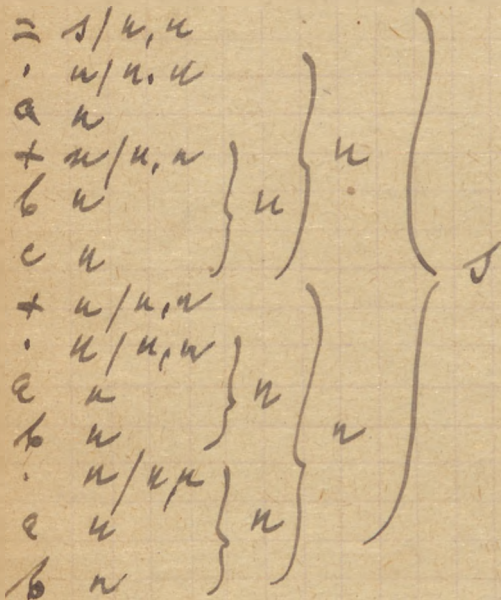 = s/n,n
· n/n.n
a n
+ n/n,n
b n
c n
+ n/n,n
· n/n,n
a n
b n
· n/n,n
a n
b n
n
n
n
n
n
s